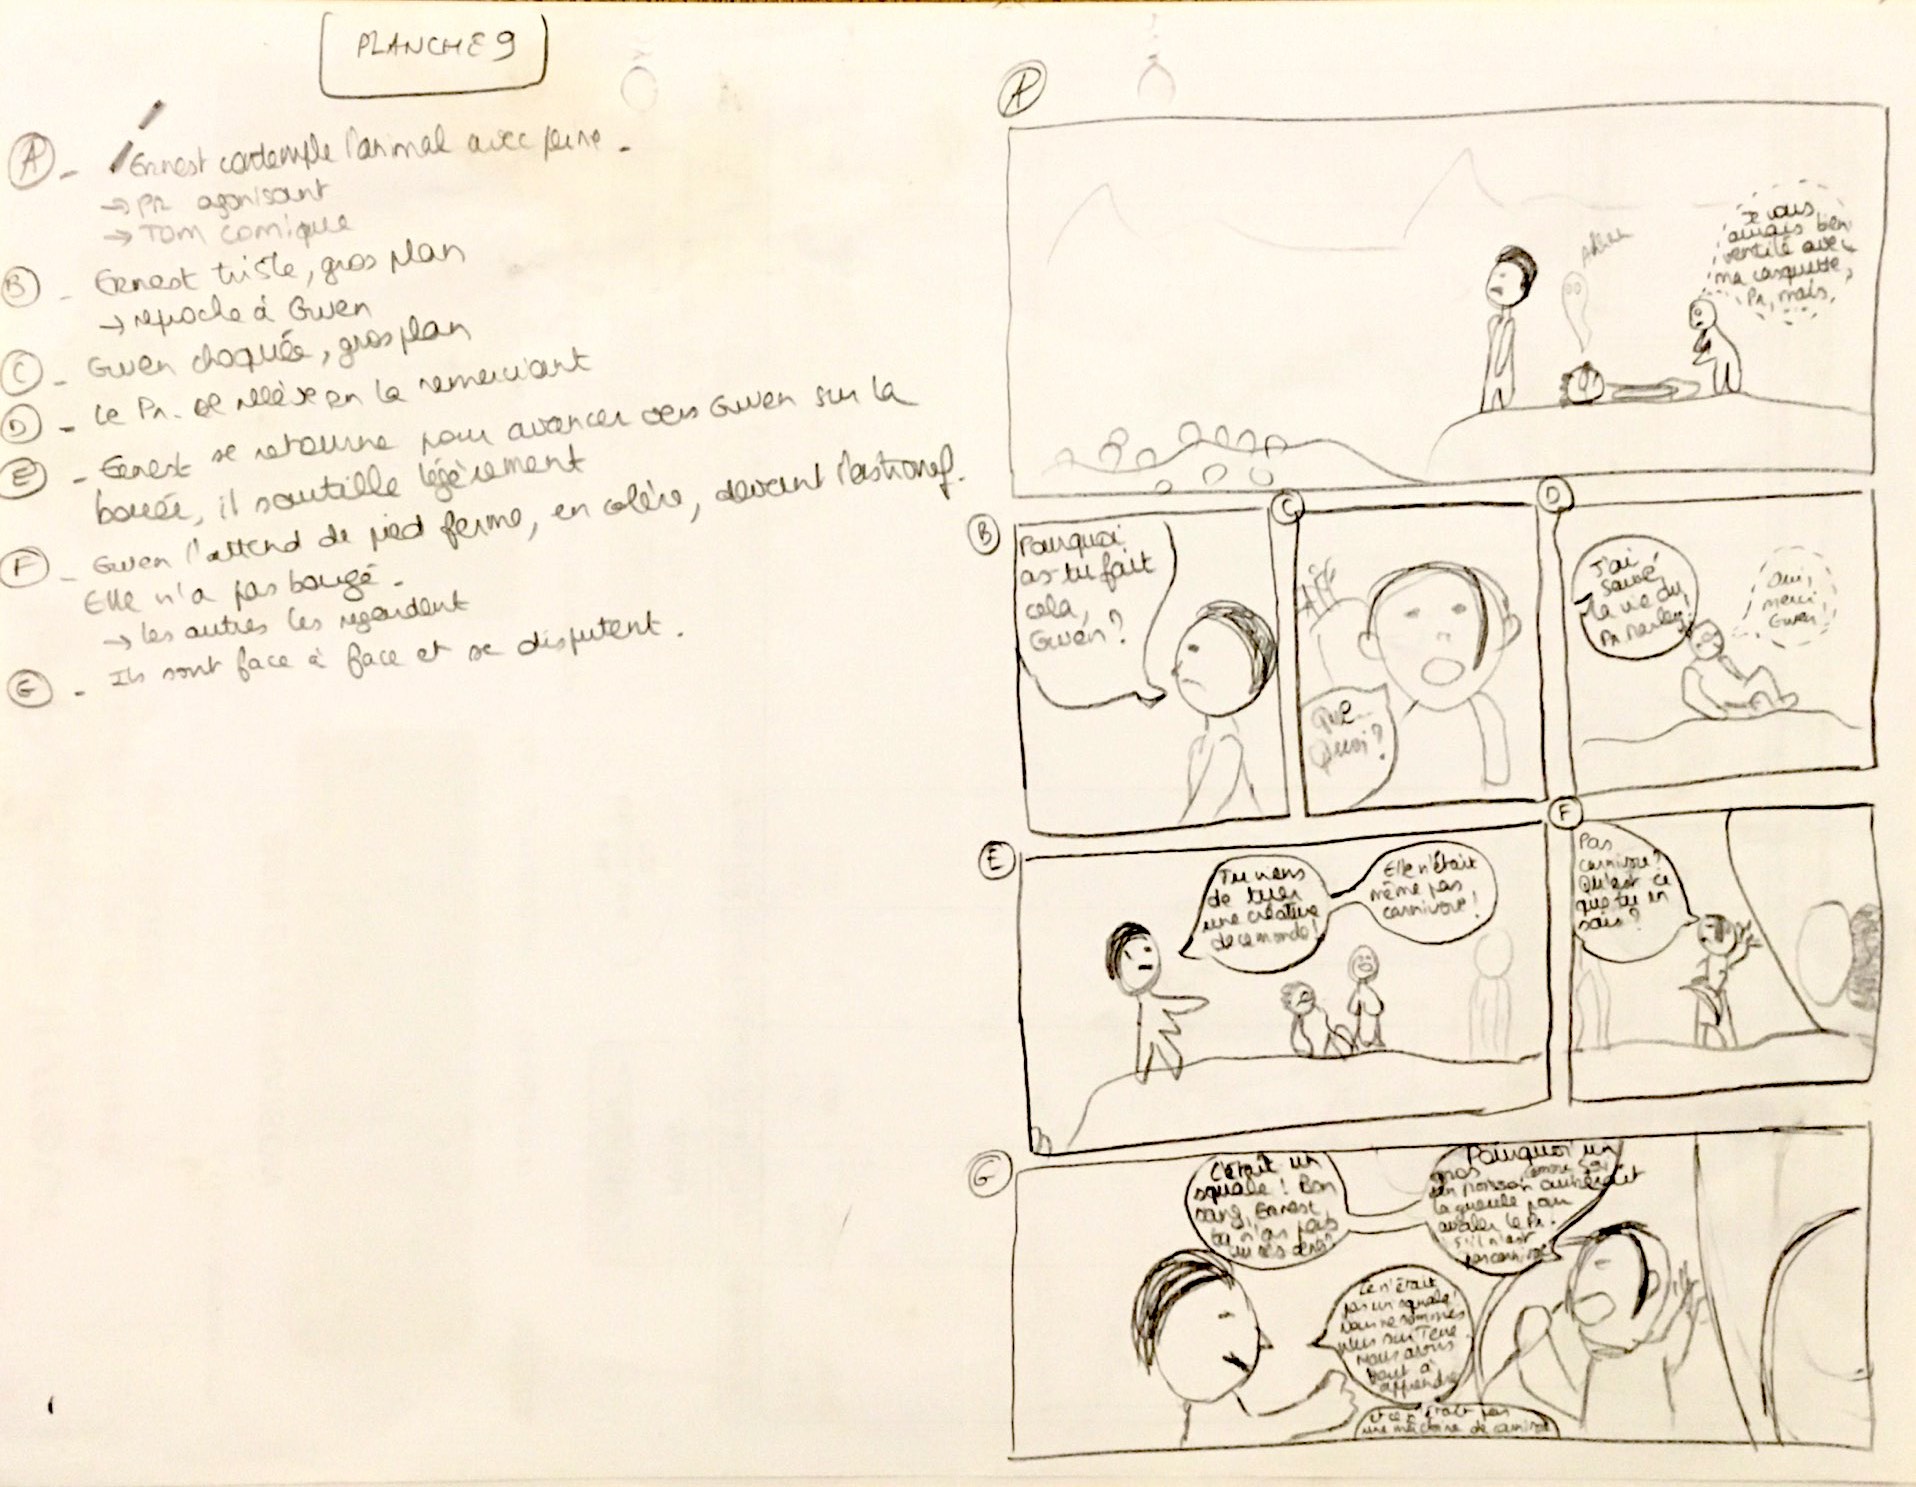 PLANCHE 9
A - Ernest contemple l'animal avec peine.
→ PR agonisant
→ TOM comique
B - Ernest triste, gros plan
→ reproche à Gwen
C - Gwen choquée, gros plan
D - Le Pr. se relève en la remerciant
E - Ernest se retourne pour avancer vers Gwen sur la
bouée, il sautille légèrement
F - Gwen l'attend de pied ferme, en colère, devant l'astronef.
Elle n'a pas bougé.
→ les autres les regardent
G - Ils sont face à face et se disputent.
A
Je vous
aurais bien
ventilé avec
ma casquette,
Pr, mais,
B
Pourquoi
as-tu fait
cela,
Gwen?
C
Que...
Quoi?
D
J'ai
sauvé
la vie du
Pr
Oui,
merci
Gwen!
E
Tu viens
de tuer
une créature
de ce monde!
Elle n'était
même pas
carnivore!
F
Pas
carnivore?
Qu'est ce
que tu en
sais?
G
C'était un
squale! Bon
sang, Ernest,
tu n'as pas
vu ses dents?
Pourquoi un
gros
un poisson ouvrirait
la gueule pour
avaler le Pr.
s'il n'est
pas carnivore
Ce n'était
pas un squale!
Nous ne sommes
plus sur Terre.
Nous avons
tout à
apprendre
et ce n'était pas
une mâchoire de carnivore